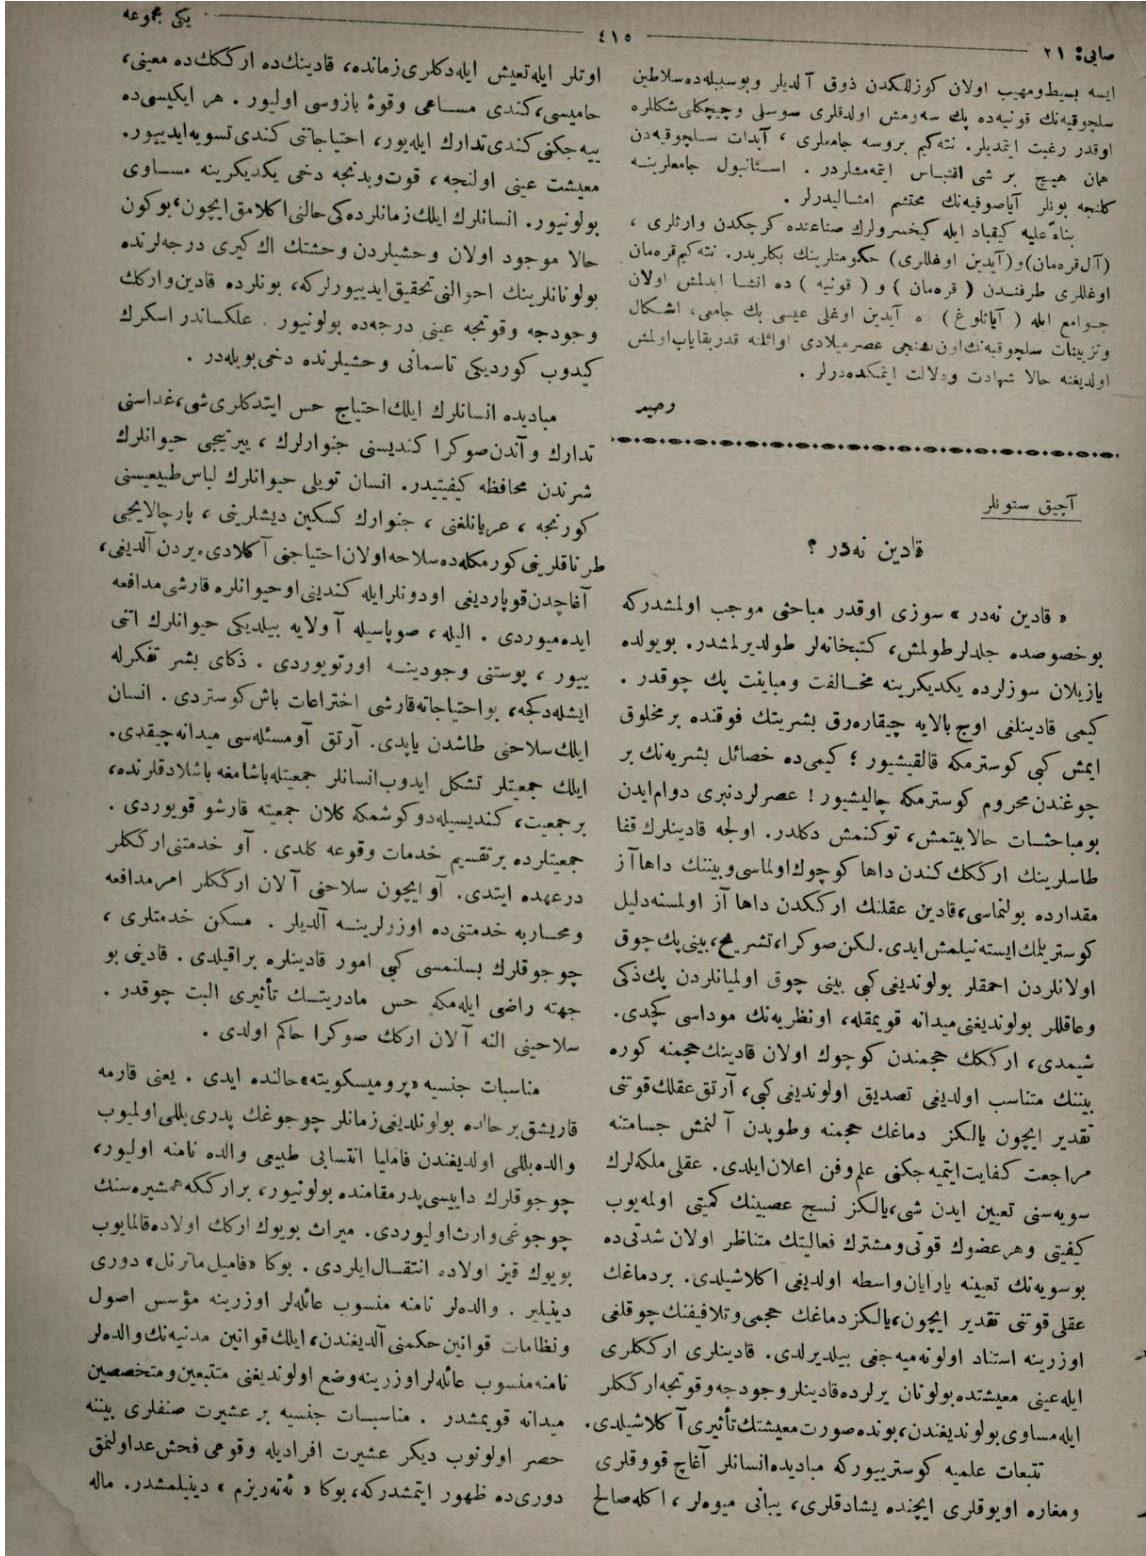 صایی: ٢١
٤١٥
یكی مجموعه
ایسه بسیط ومهیب اولان كوزللكدن ذوق آلدیلر وبوسببله ده سلاطین
سلجوقیه نك قونیه ده پك سه ومش اولدقلری سوسلی وچیچكلی شكللره
اوقدر رغبت ایتمدیلر. نته كیم بروسه جامعلری ، آبدات سلجوقیه دن
همان هیچ بر شی اقتباس ایتمه مشلردر . استانبول جامعلرینه
كلنجه بونلر آیاصوفیه نك محتشم امثالیدرلر .
بناءً علیه كیقباد ایله كیخسرولرك صناعتده كرچكدن وارثلری ،
(آل قره مان) و (آیدین اوغللری) حكومتلرینك بكلریدر. نته كیم قره مان
اوغللری طرفندن ( قره مان ) و ( قونیه ) ده انشا ایدلمش اولان
جوامع ایله ( آیاثلوغ ) ه آیدین اوغلی عیسی بك جامعی، اشكال
وتزیینات سلجوقیه نك اون بشنجی عصر میلادی اوائلنه قدر بقایاب اولمش
اولدیغنه حالا شهادت ودلالت ایتمكده درلر .
وحید
آچیق ستونلر
قادین نه در ؟
« قادین نه در » سوزی اوقدر مباحثی موجب اولمشدركه
بوخصوصده جلدلر طولمش، كتبخانه لر طولدیرلمشدر. بویولده
یازیلان سوزلرده یكدیكرینه مخالفت ومباینت پك چوقدر .
كیمی قادینلغی اوج بالایه چیقاره رق بشریتك فوقنده بر مخلوق
ایمش كبی كوسترمكه قالقیشیور ؛ كیمی ده خصائل بشریه نك بر
چوغندن محروم كوسترمكه چالیشیور ! عصرلردنبری دوام ایدن
بومباحثات حالا بیتمش، توكنمش دكلدر. اولجه قادینلرك قفا
طاسلرینك ارككك كندن داها كوچوك اولماسی وبیننك داها آز
مقدارده بولنماسی، قادین عقلنك ارككدن داها آز اولمسنه دلیل
كوستریلمك ایسته نیلمش ایدی. لكن صوكرا، تشریح، بینی پك چوق
اولانلردن احمقلر بولوندیغی كبی بینی چوق اولمیانلردن پك ذكی
وعاقللر بولوندیغنی میدانه قویمقله، او نظریه نك موداسی كچدی.
شیمدی، ارككك حجمندن كوچوك اولان قادینك حجمنه كوره
بیننك متناسب اولدیغی تصدیق اولوندیغی كبی، آرتق عقلك قوتنی
تقدیر ایچون یالكز دماغك حجمنه وطوپدن آلنمش جسامتنه
مراجعت كفایت ایتمیه جكنی علم وفن اعلان ایلدی. عقلی ملكه لرك
سویه سنی تعیین ایدن شی، یالكز نسج عصبینك كمیتی اولمه یوب
كیفیتی وهر عضوك قوتی ومشترك فعالیتك متناظر اولان شدتی ده
بوسویه نك تعیینه یارایان واسطه اولدیغی اكلاشیلدی. بردماغك
عقلی قوتنی تقدیر ایچون، یالكز دماغك حجمی وتلافیفنك چوقلغی
اوزرینه استناد اولونه میه جغنی بیلدیرلدی. قادینلری ارككلری
ایله عینی معیشتده بولونان یرلرده قادینلر وجودجه وقوتجه ارككلر
ایله مساوی بولوندیغندن، بونده صورت معیشتك تأثیری آكلاشیلدی.
تتبعات علمیه كوستریوركه مبادیده انسانلر آغاچ قووقلری
ومغاره اویوقلری ایچنده یشادقلری، یبانی میوه لر ، اكله صالح
اوتلر ایله تعیش ایله دكلری زمانده، قادینك ده ارككك ده معینی،
حامیسی، كندی مساعی وقوهٔ بازوسی اولیور . هر ایكیسی ده
ییه جكنی كندی تدارك ایله یور، احتیاجاتنی كندی تسویه ایدییور.
معیشت عینی اولنجه ، قوت وبدنجه دخی یكدیكرینه مساوی
بولونیور. انسانلرك ایلك زمانلرده كی حالنی اكلامق ایچون، بوكون
حالا موجود اولان وحشیلردن وحشتك اك كیری درجه لرنده
بولونانلرینك احوالنی تحقیق ایدییورلركه، بونلرده قادین واركك
وجودجه وقوتجه عینی درجه ده بولونیور . علكساندر اسكرك
كیدوب كوردیكی تاسمانی وحشیلرنده دخی بویله در .
مبادیده انسانلرك ایلك احتیاج حس ایتدكلری شی، غداسنی
تدارك وآندن صوكرا كندیسنی جنوارلرك ، ییرتیجی حیوانلرك
شرندن محافظه كیفیتیدر. انسان تویلی حیوانلرك لباس طبیعیسنی
كورنجه ، عریانلغنی ، جنوارك كسكین دیشلرینی ، پارچالایجی
طرناقلرینی كورمكله ده سلاحه اولان احتیاجنی آكلادی. یردن آلدیغی،
آغاچدن قوپاردیغی اودونلر ایله كندینی او حیوانلره قارشی مدافعه
ایده میوردی . الیله ، صوپاسیله آولایه بیلدیكی حیوانلرك اتنی
ییور ، پوستنی وجودینه اورتویوردی . ذكای بشر تفكرله
ایشله دكجه، بو احتیاجاته قارشی اختراعات باش كوستردی . انسان
ایلك سلاحنی طاشدن یاپدی. آرتق آو مسئله سی میدانه چیقدی.
ایلك جمعیتلر تشكل ایدوب انسانلر جمعیتله یاشامغه باشلادقلرنده،
بر جمعیت، كندیسیله دوكوشمكه كلان جمعیته قارشو قویوردی .
جمعیتلرده بر تقسیم خدمات وقوعه كلدی . آو خدمتنی ارككلر
درعهده ایتدی. آو ایچون سلاحنی آلان ارككلر امر مدافعه
ومحاربه خدمتنی ده اوزرلرینه آلدیلر . مسكن خدمتلری ،
چوجوقلرك بسلنمسی كبی امور قادینلره براقیلدی . قادینی بو
جهته راضی ایله مكه حس مادریتك تأثیری البت چوقدر .
سلاحینی النه آلان اركك صوكرا حاكم اولدی .
مناسبات جنسیه «پرومیسكویته» حالنده ایدی . یعنی قارمه
قاریشق بر حالده بولونلدیغی زمانلر چوجوغك پدری بللی اولمیوب
والده بللی اولدیغندن فامیلیا انتسابی طبیعی والده نامنه اولیور،
چوجوقلرك داییسی پدر مقامنده بولونیور، بر ارككه همشیره سنك
چوجوغی وارث اولیوردی. میراث بویوك اركك اولاده قالمایوب
بویوك قیز اولاده انتقال ایلردی . بوكا «فامیل ماترنل» دوری
دینیلیر . والده لر نامنه منسوب عائله لر اوزرینه مؤسس اصول
ونظامات قوانین حكمنی آلدیغندن، ایلك قوانین مدنیه نك والده لر
نامنه منسوب عائله لر اوزرینه وضع اولوندیغنی متتبعین ومتخصصین
میدانه قویمشدر . مناسبات جنسیه بر عشیرت صنفلری بیننه
حصر اولونوب دیكر عشیرت افرادیله وقوعی فحش عد اولنمق
دوری ده ظهور ایتمشدركه، بوكا « ئه ته ریزم » دینیلمشدر. ماله